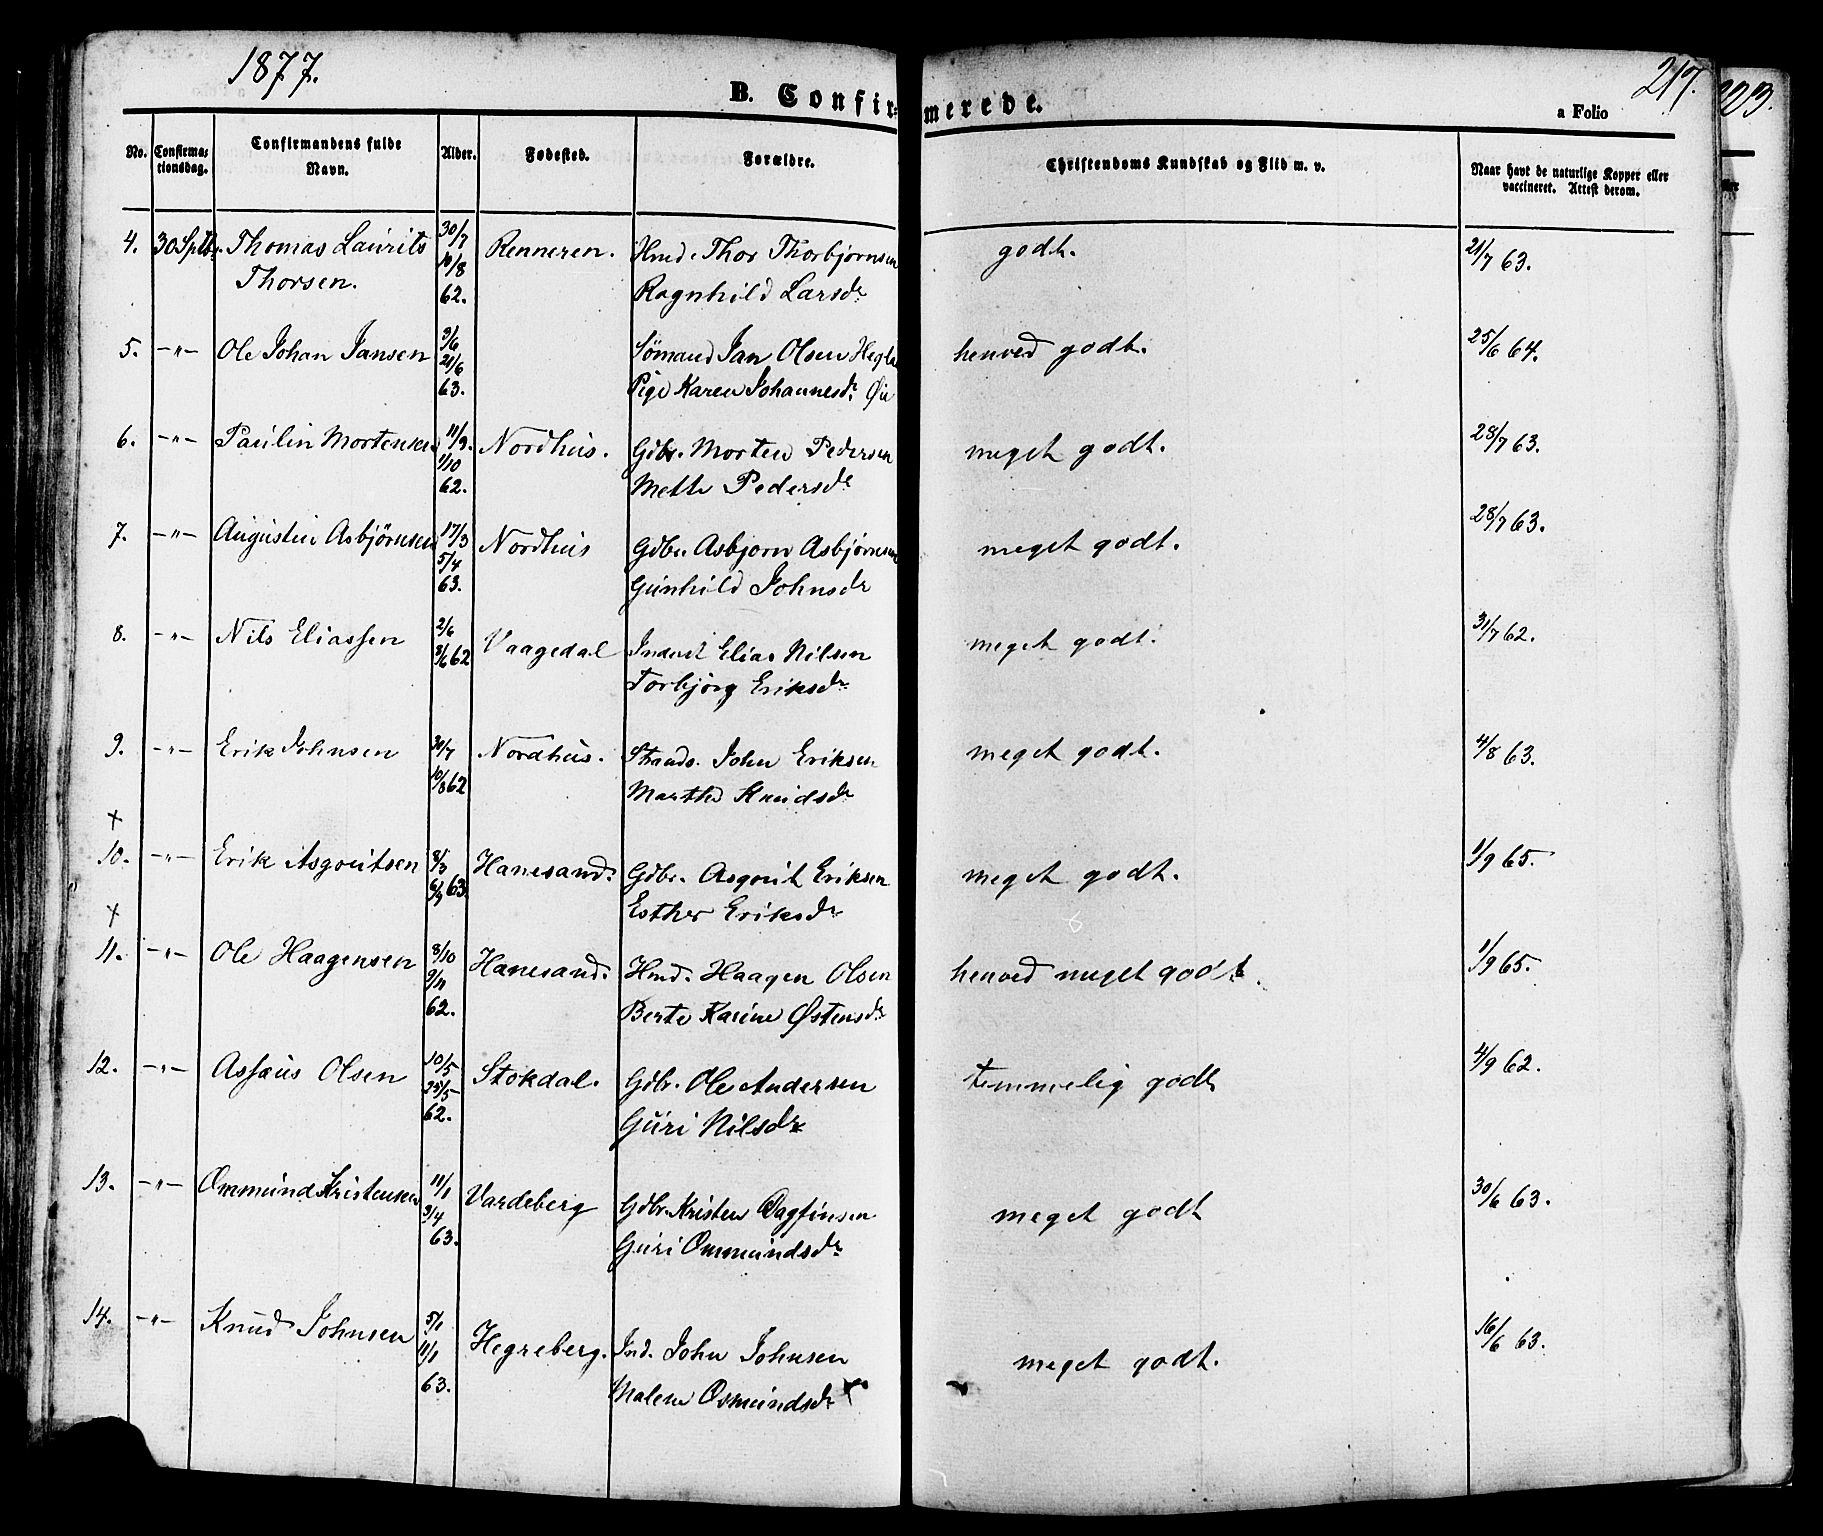 1877.
217.
203.
B. Confirmerede.
a Folio
No.
Confirmationsdag.
Confirmandens fulde Navn.
Alder.
Fødested.
Forældre.
Christendoms Kundskab og Flid m. v.
Naar havt de naturlige Kopper eller vaccineret. Attest derom.
4. 30 Sptb. Thomas Laurits 30/7 Renneren. Hmd. Thor Thorbjørnsen godt. 21/7 63.
Thorsen. 10/8 62. Ragnhild Larsdr
5. -"- Ole Johan Jansen 9/6 21/6 63. Sömand Jan Olsen henved godt. 25/6 64.
Pige Karen Johannesdr.
6. -"- Paulin Mortensen 11/9. 1/10 62. Nordhus. Gdbr. Morten Pedersen meget godt. 28/7 63.
Mette Pedersdr
7. -"- Augustin Asbjörnsen 17/3 5/4 63. Nordhus Gdbr. Asbjørn Asbjørnsen meget godt. 28/7 63.
Gunhild Johnsdr
8. -"- Nils Eliassen 2/6 8/6 62 Vaagedal Inderst Elias Nilsen meget godt. 31/7 62.
Torbjørg Eriksdr.
9. -"- Erik Johnsen 30/7 10/8 62 Nordhus. Strands. John Eriksen meget godt. 4/8 63.
Marthe Knudsdr
+
10. -"- Erik Asgoutsen 8/3 63. Hanesand. Gdbr. Asgout Eriksen meget godt. 1/9 65.
Esther Eriksdr
+
11. -"- Ole Haagensen 8/10 9/11 62. Hanesand. Hmd. Haagen Olsen henved meget godt. 1/9 65.
Berte Karine Østensdr
12. -"- Assæus Olsen 10/5 25/5 62. Stokdal. Gdbr. Ole Andersen temmelig godt 4/9 62.
Guri Nilsdr
13. -"- Ommund Kristensen 11/1 3/4 63. Vardeberg Gdbr. Kristen Dagfinsen meget godt 30/6 63.
Guri Ommundsdr
14. -"- Knud Johnsen 5/1 11/1 63. Hegreberg. Ind. John Johnsen meget godt. 16/6 63.
Malene Osmundsdr